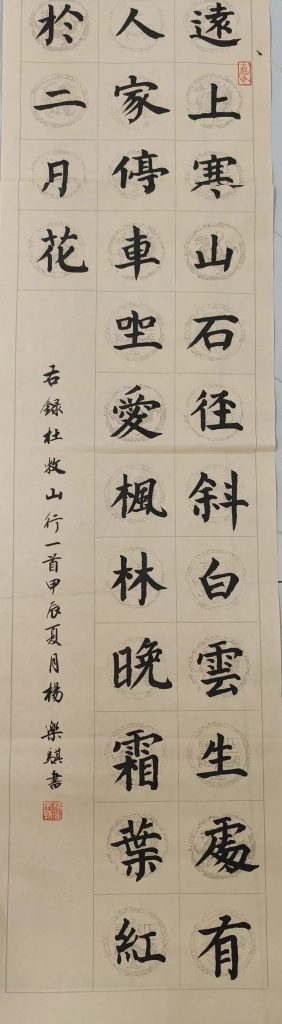 遠上寒山石径斜白雲生處有
人家停車坐愛楓林晚霜葉紅
於二月花
右錄杜牧山行一首甲辰夏月楊樂騏書